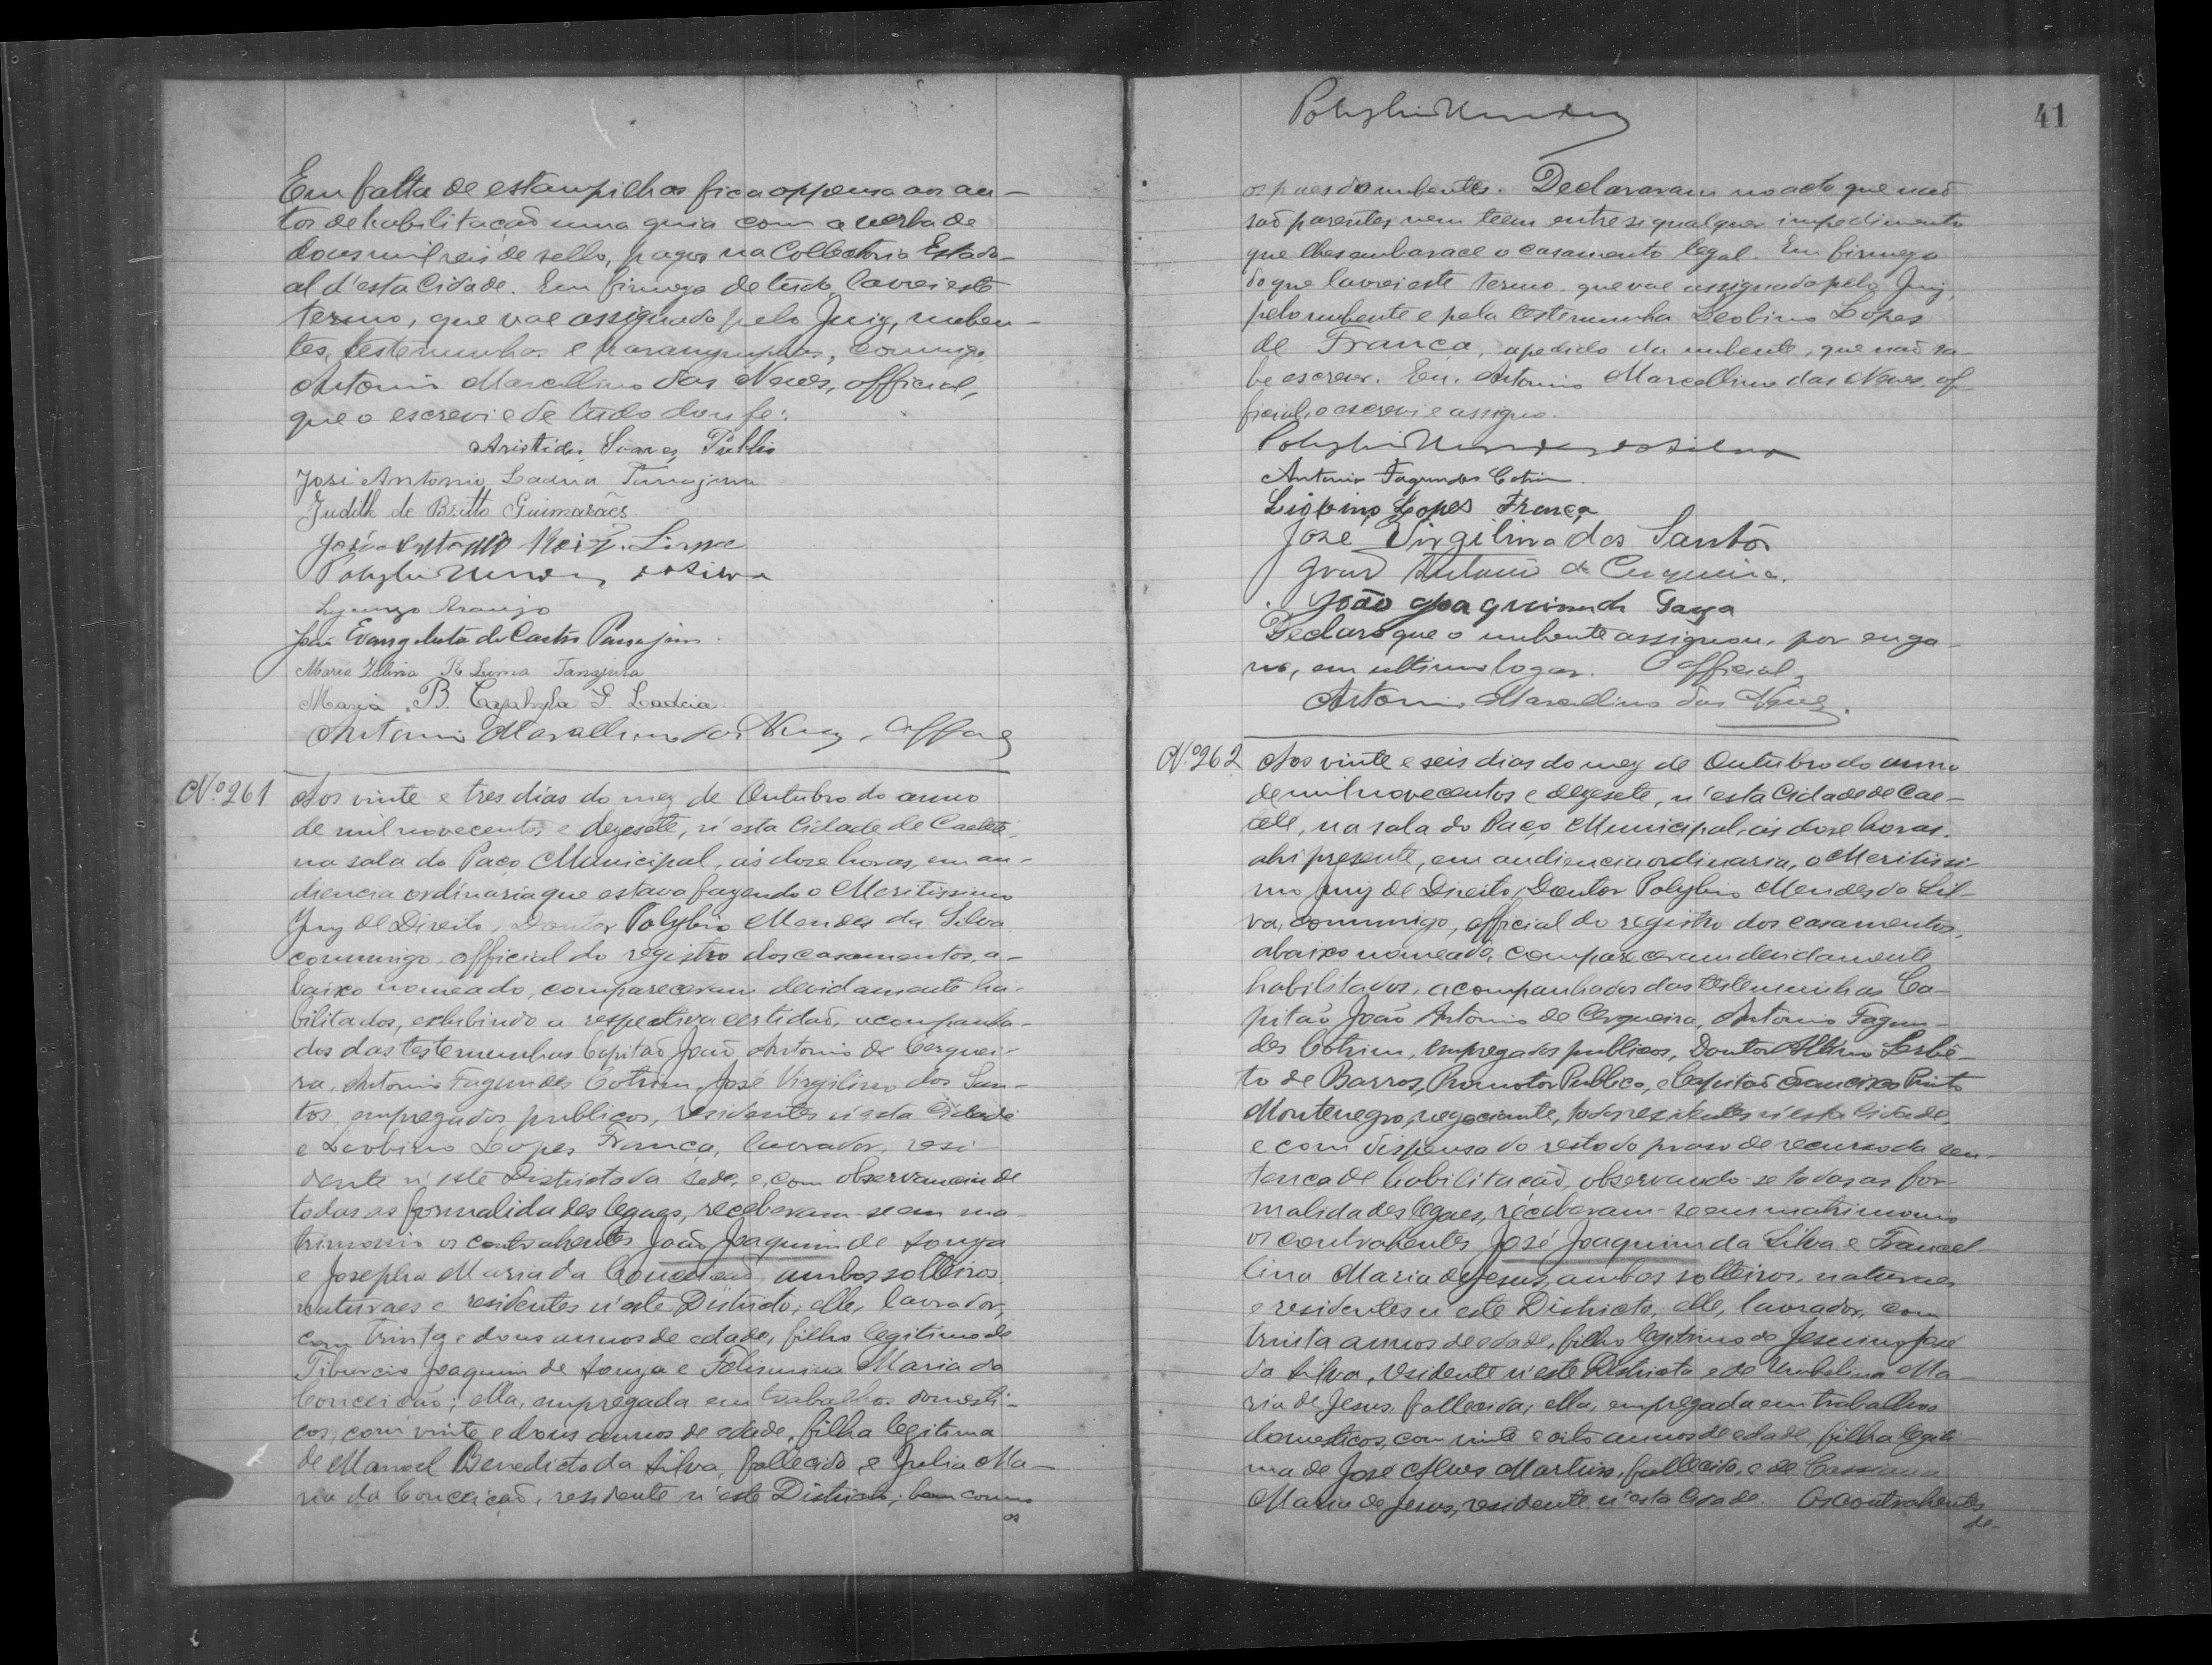 Em falta de estampilhas fica appensa aos au-
tos de habilitação uma guia com a verba de
dous mil reis de sello, pagos na Collectoria Estado-
al d'esta Cidade. Em firmeza de tudo lavrei este
termo, que vae assignado pelo Juiz, nuben-
tes, testemunhas e paranymphos, commigo,
Antonio Marcellino das Neves, official,
que o escrevi e de tudo dou fé.
Aristides Soares Publio
José Antonio Ladeia Tanajura
Judith de Britto Guimarães
José Antonio Lima
Polybio Mendes da Silva
Araujo
José Evangelista de Castro Tanajura
Maria Tanajura
Maria B. G. Ladeia
Antonio Marcellino das Neves, official
Nº 261 Aos vinte e tres dias do mez de Outubro do anno
de mil novecentos e dezesete, n'esta Cidade de Caeteté,
na sala do Paço Municipal, ás doze horas, em au-
diencia ordinaria que estava fazendo o Meritissimo
Juiz de Direito, Doutor Polybio Mendes da Silva
commigo, official do registro dos casamentos, a-
baixo nomeado, compareceram devidamente ha-
bilitados, exhibindo a respectiva certidão, acompanha-
dos das testemunhas Capitão João Antonio de Cerquei-
ra, Antonio Fagundes Cotrim, José Virgilino dos San-
tos, empregados publicos, residentes n'esta Cidade
e Leobino Lopes França, lavrador, resi-
dente n'este Districto da sede, e, com observancia de
todas as formalidades legaes, receberam-se em ma-
trimonio os contrahentes João Joaquim de Souza
e Josepha Maria da Conceição, ambos solteiros,
naturaes e residentes n'este Districto, elle, lavrador,
com trinta e dous annos de edade, filho legitimo de
Tiburcio Joaquim de Souza e Felismina Maria da
Conceição; ella, empregada em trabalhos domesti-
cos, com vinte e dous annos de edade, filha legitima
de Manoel Benedicto da Silva, fallecido, e Julia Ma-
ria da Conceição, residente n'este Districto, bem como
os
Polybio Mendes
41
os paes da nubente. Declararam no acto que não
são parentes, nem teem entre si qualquer impedimento
que lhes embarace o casamento legal. Em firmeza
do que lavrei este termo, que vae assignado pelo Juiz,
pelo nubente e pela testemunha Leobino Lopes
de França, a pedido da nubente, que não sa-
be escrever. Eu, Antonio Marcellino das Neves, of-
ficial, o escrevi e assigno.
Polybio Mendes da Silva
Antonio Fagundes Cotrim.
Liobino Lopes França
José Virgilino dos Santos
João Antonio de Cerqueira.
João Joaquim de Souza
Declaro que o nubente assignou, por enga-
no, em ultimo logar. O official,
Antonio Marcellino das Neves.
Nº 262 Aos vinte e seis dias do mez de Outubro do anno
de mil novecentos e dezesete, n'esta Cidade de Cae-
teté, na sala do Paço Municipal, ás doze horas,
ahi presente, em audiencia ordinaria, o Meritissi-
mo Juiz de Direito, Doutor Polybio Mendes da Sil-
va, commigo, official do registro dos casamentos,
abaixo nomeado, compareceram devidamente
habilitados, acompanhados das testemunhas Ca-
pitão João Antonio de Cerqueira, Antonio Fagun-
des Cotrim, empregados publicos, Doutor Altino Lesbe-
to de Barros, Promotor Publico, e Capitão Francisco Pinto
Montenegro, negociante, todos residentes n'esta Cidade,
e com dispensa do resto do praso de recurso da sen-
tença de habilitação, observando-se todas as for-
malidades legaes, receberam-se em matrimonio
os contrahentes José Joaquim da Silva e Francel-
lina Maria de Jesus, ambos solteiros, naturaes
e residentes n'este Districto, elle, lavrador, com
trinta annos de edade, filho legitimo de Jesuino José
da Silva, residente n'este Districto e de Umbelina Ma-
ria de Jesus, fallecida; ella, empregada em trabalhos
domesticos, com vinte e oito annos de edade, filha legiti-
ma de José Alves Martins, fallecido, e de Cassiana
Maria de Jesus, residente n'esta Cidade. Os contrahentes
de-